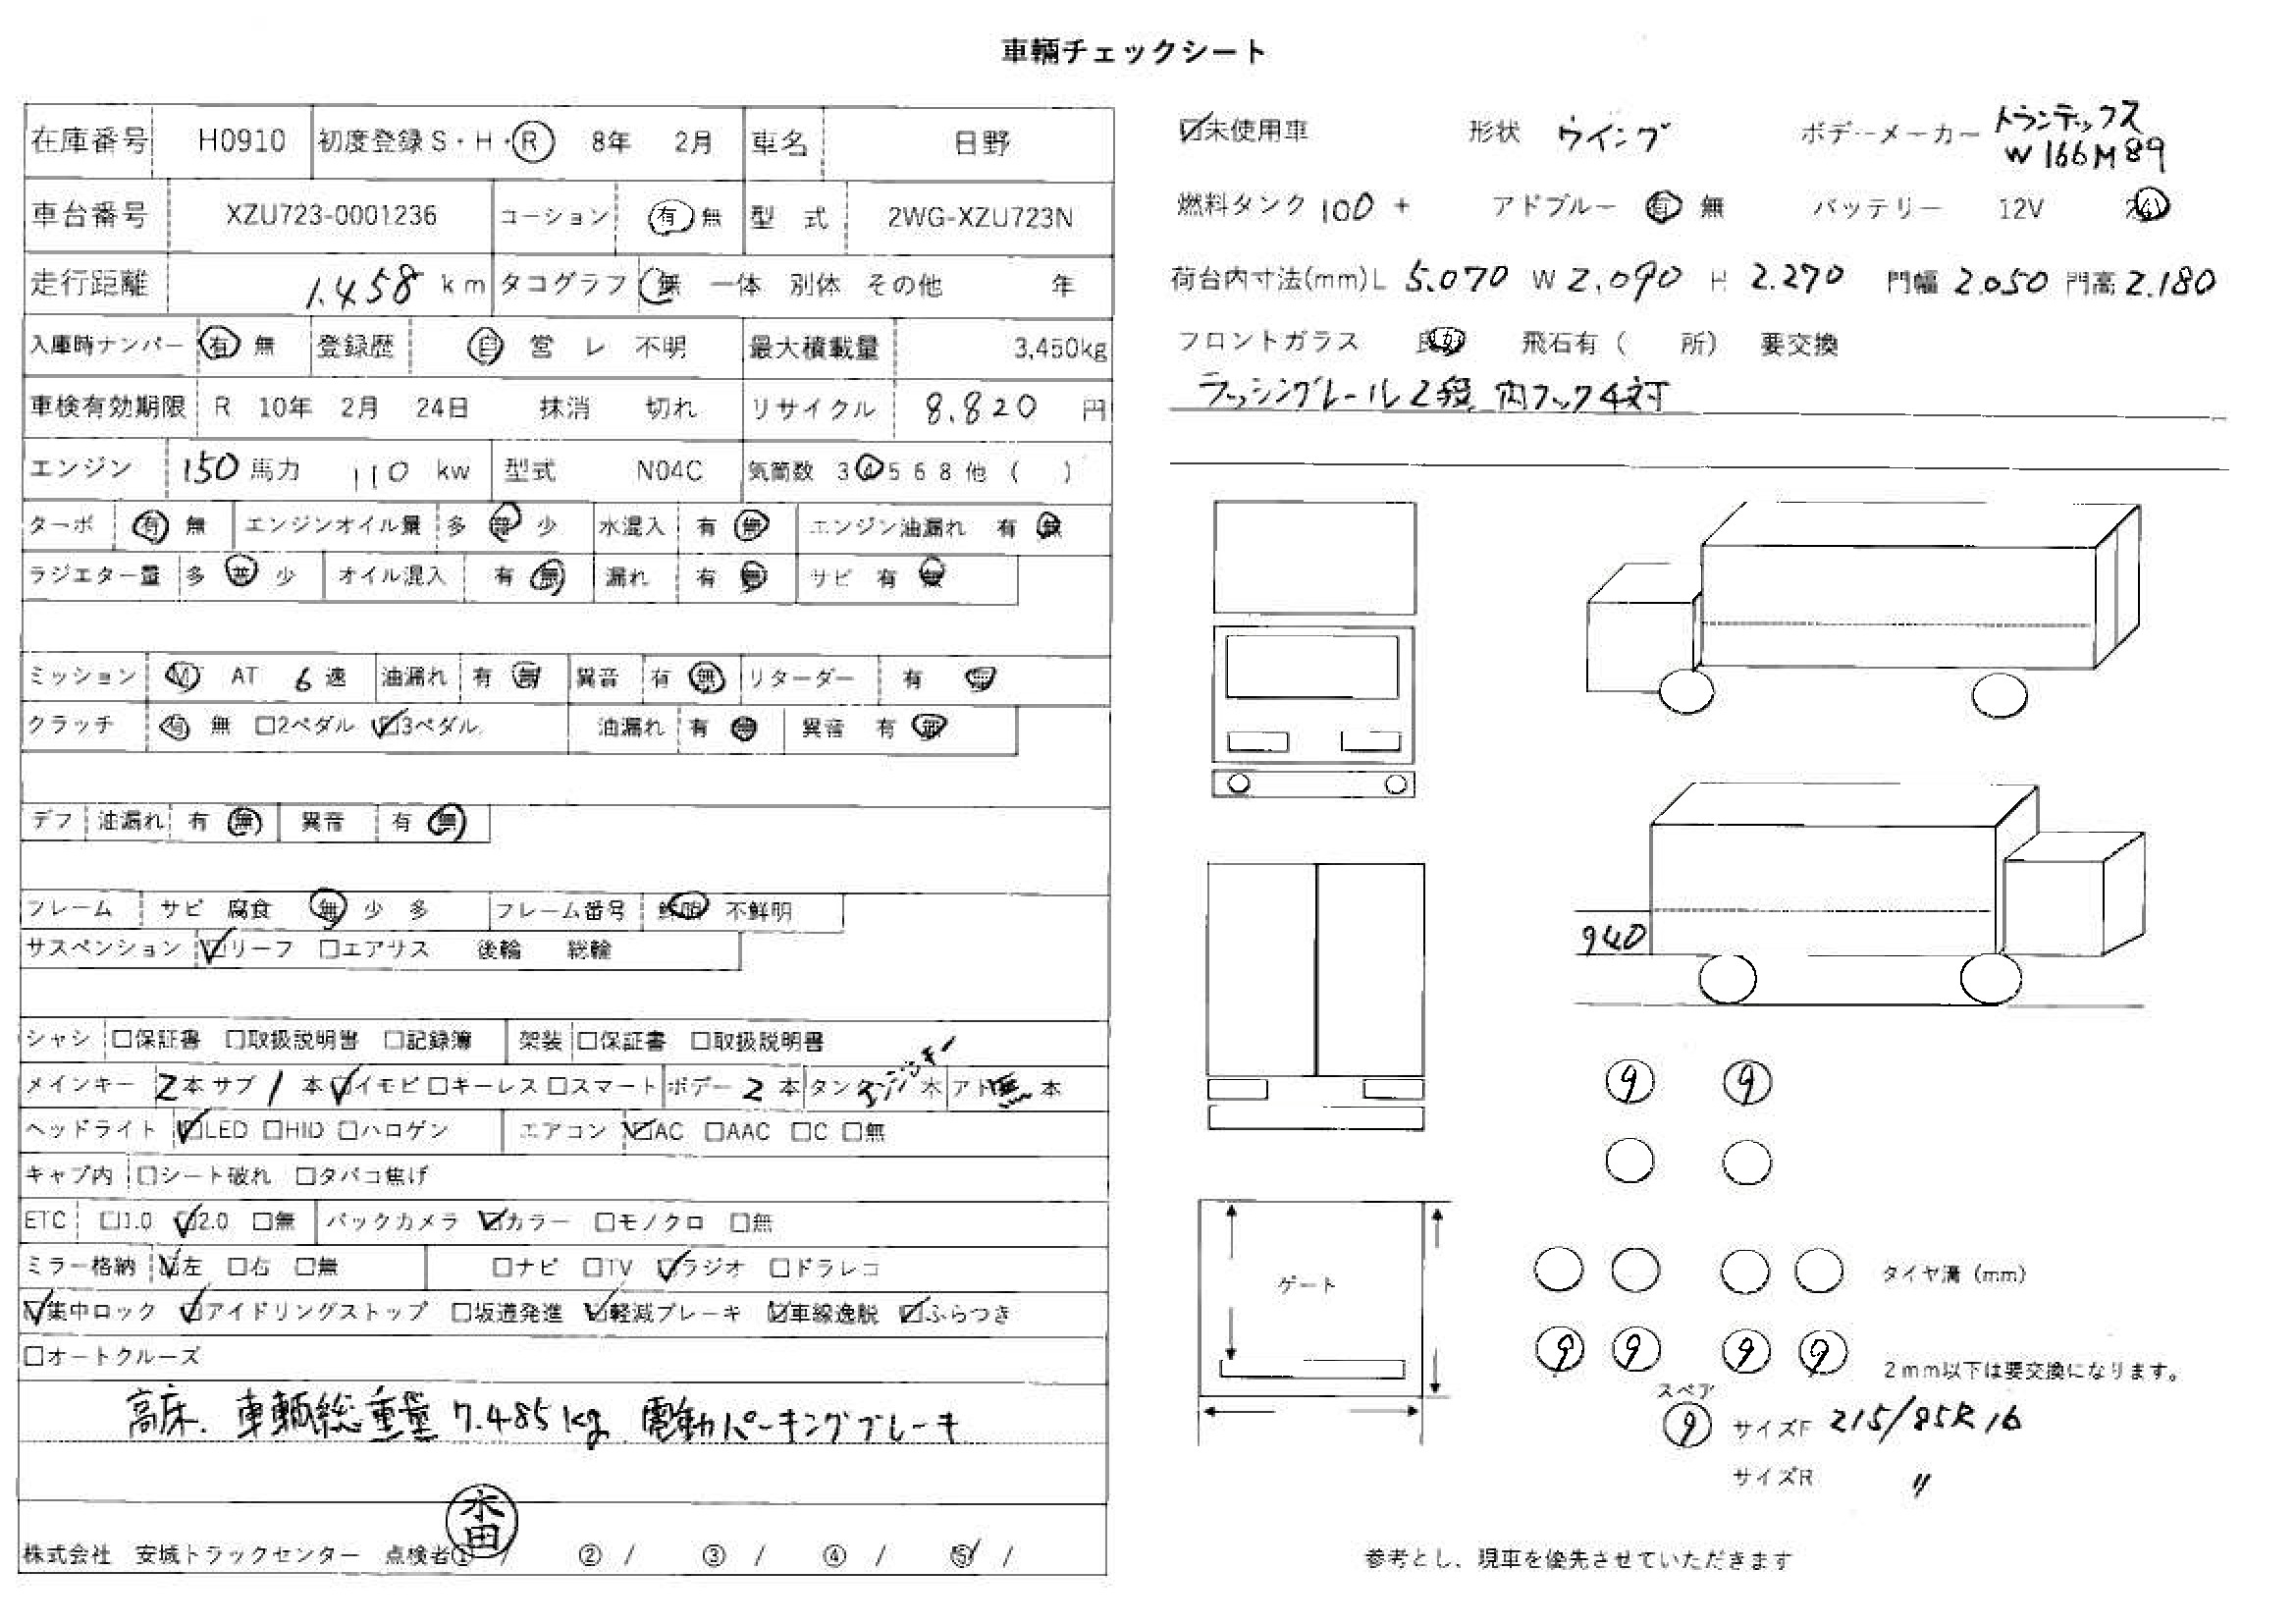 車輛チェックシート
在庫番号 H0910 初度登録 S・H・R 8年 2月 車名 日野
車台番号 XZU723-0001236 コーション 有 無 型 式 2WG-XZU723N
走行距離 1.458 km タコグラフ 無 一体 別体 その他 年
入庫時ナンバー 有 無 登録歴 自 営 レ 不明 最大積載量 3,450kg
車検有効期限 R 10年 2月 24日 抹消 切れ リサイクル 8.820 円
エンジン 150 馬力 110 kw 型式 N04C 気筒数 3 4 5 6 8 他 ( )
ターボ 有 無 エンジンオイル量 多 普 少 水混入 有 無 エンジン油漏れ 有 無
ラジエター量 多 普 少 オイル混入 有 無 漏れ 有 無 サビ 有 無
ミッション MT AT 6 速 油漏れ 有 無 異音 有 無 リターダー 有 無
クラッチ 有 無 □2ペダル ☑3ペダル 油漏れ 有 無 異音 有 無
デフ 油漏れ 有 無 異音 有 無
フレーム サビ 腐食 無 少 多 フレーム番号 鮮明 不鮮明
サスペンション ☑リーフ □エアサス 後輪 総輪
シャシ □保証書 □取扱説明書 □記録簿 架装 □保証書 □取扱説明書
メインキー 2本 サブ 1 本 ☑イモビ □キーレス □スマート ボデー 2 本 タンク エンジンキー 本 アド 無 本
ヘッドライト ☑LED □HID □ハロゲン エアコン ☑AC □AAC □C □無
キャブ内 □シート破れ □タバコ焦げ
ETC □1.0 ☑2.0 □無 バックカメラ ☑カラー □モノクロ □無
ミラー格納 ☑左 □右 □無 □ナビ □TV ☑ラジオ □ドラレコ
☑集中ロック ☑アイドリングストップ □坂道発進 ☑軽減ブレーキ ☑車線逸脱 ☑ふらつき
□オートクルーズ
高床. 車輌総重量 7.485kg 電動パーキングブレーキ
水田
株式会社 安城トラックセンター 点検者① / ② / ③ / ④ / ⑤ /
☑未使用車 形状 ウイング ボデーメーカー トランテックス
W166M89
燃料タンク 100 + アドブルー 有 無 バッテリー 12V 24V
荷台内寸法(mm) L 5.070 W 2.090 H 2.270 門幅 2.050 門高 2.180
フロントガラス 良好 飛石有 ( 所) 要交換
ラッシングレール2段 内フック4対
940
9 9
ゲート
タイヤ溝 (mm)
9 9 9 9
2mm以下は要交換になります。
スペア
9 サイズF 215/85R16
サイズR 〃
参考とし、現車を優先させていただきます